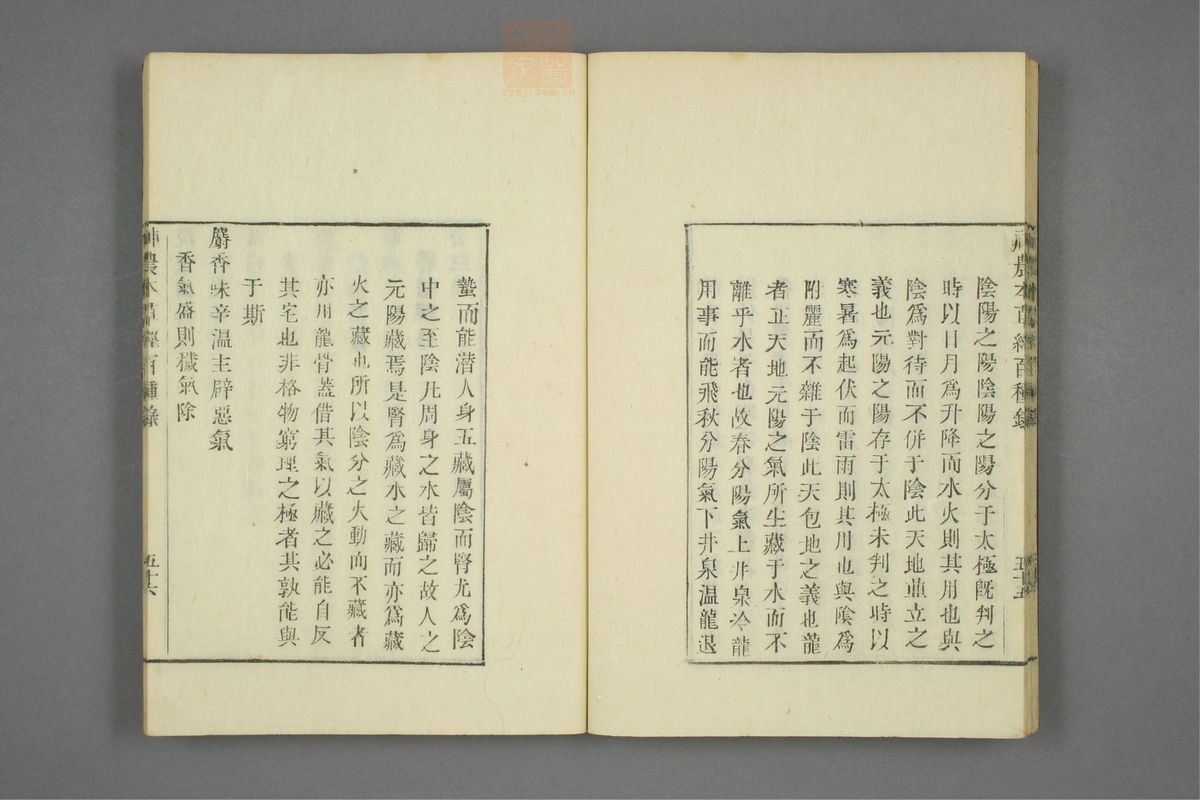 陰陽之陽陰陽之陽分于太極旣判之
時以日月爲升降而水火則其用也與
陰爲對待而不併于陰此天地並立之
義也元陽之陽存于太極未判之時以
寒暑爲起伏而雷雨則其用也與陰爲
附麗而不雜于陰此天包地之義也龍
者正天地元陽之氣所生藏于水而不
離乎水者也故春分陽氣上井泉冷龍
用事而能飛秋分陽氣下井泉温龍退
神農本草經百種錄
五十五
蟄而能潜人身五藏屬陰而腎尤爲陰
中之至陰凡周身之水皆歸之故人之
元陽藏焉是腎爲藏水之藏而亦爲藏
火之藏也所以陰分之火動而不藏者
亦用龍骨蓋借其氣以藏之必能自反
其宅也非格物窮理之極者其孰能與
于斯
麝香味辛温主辟惡氣
香氣盛則穢氣除
神農本草經百種錄
五十六
zysj.com.cn